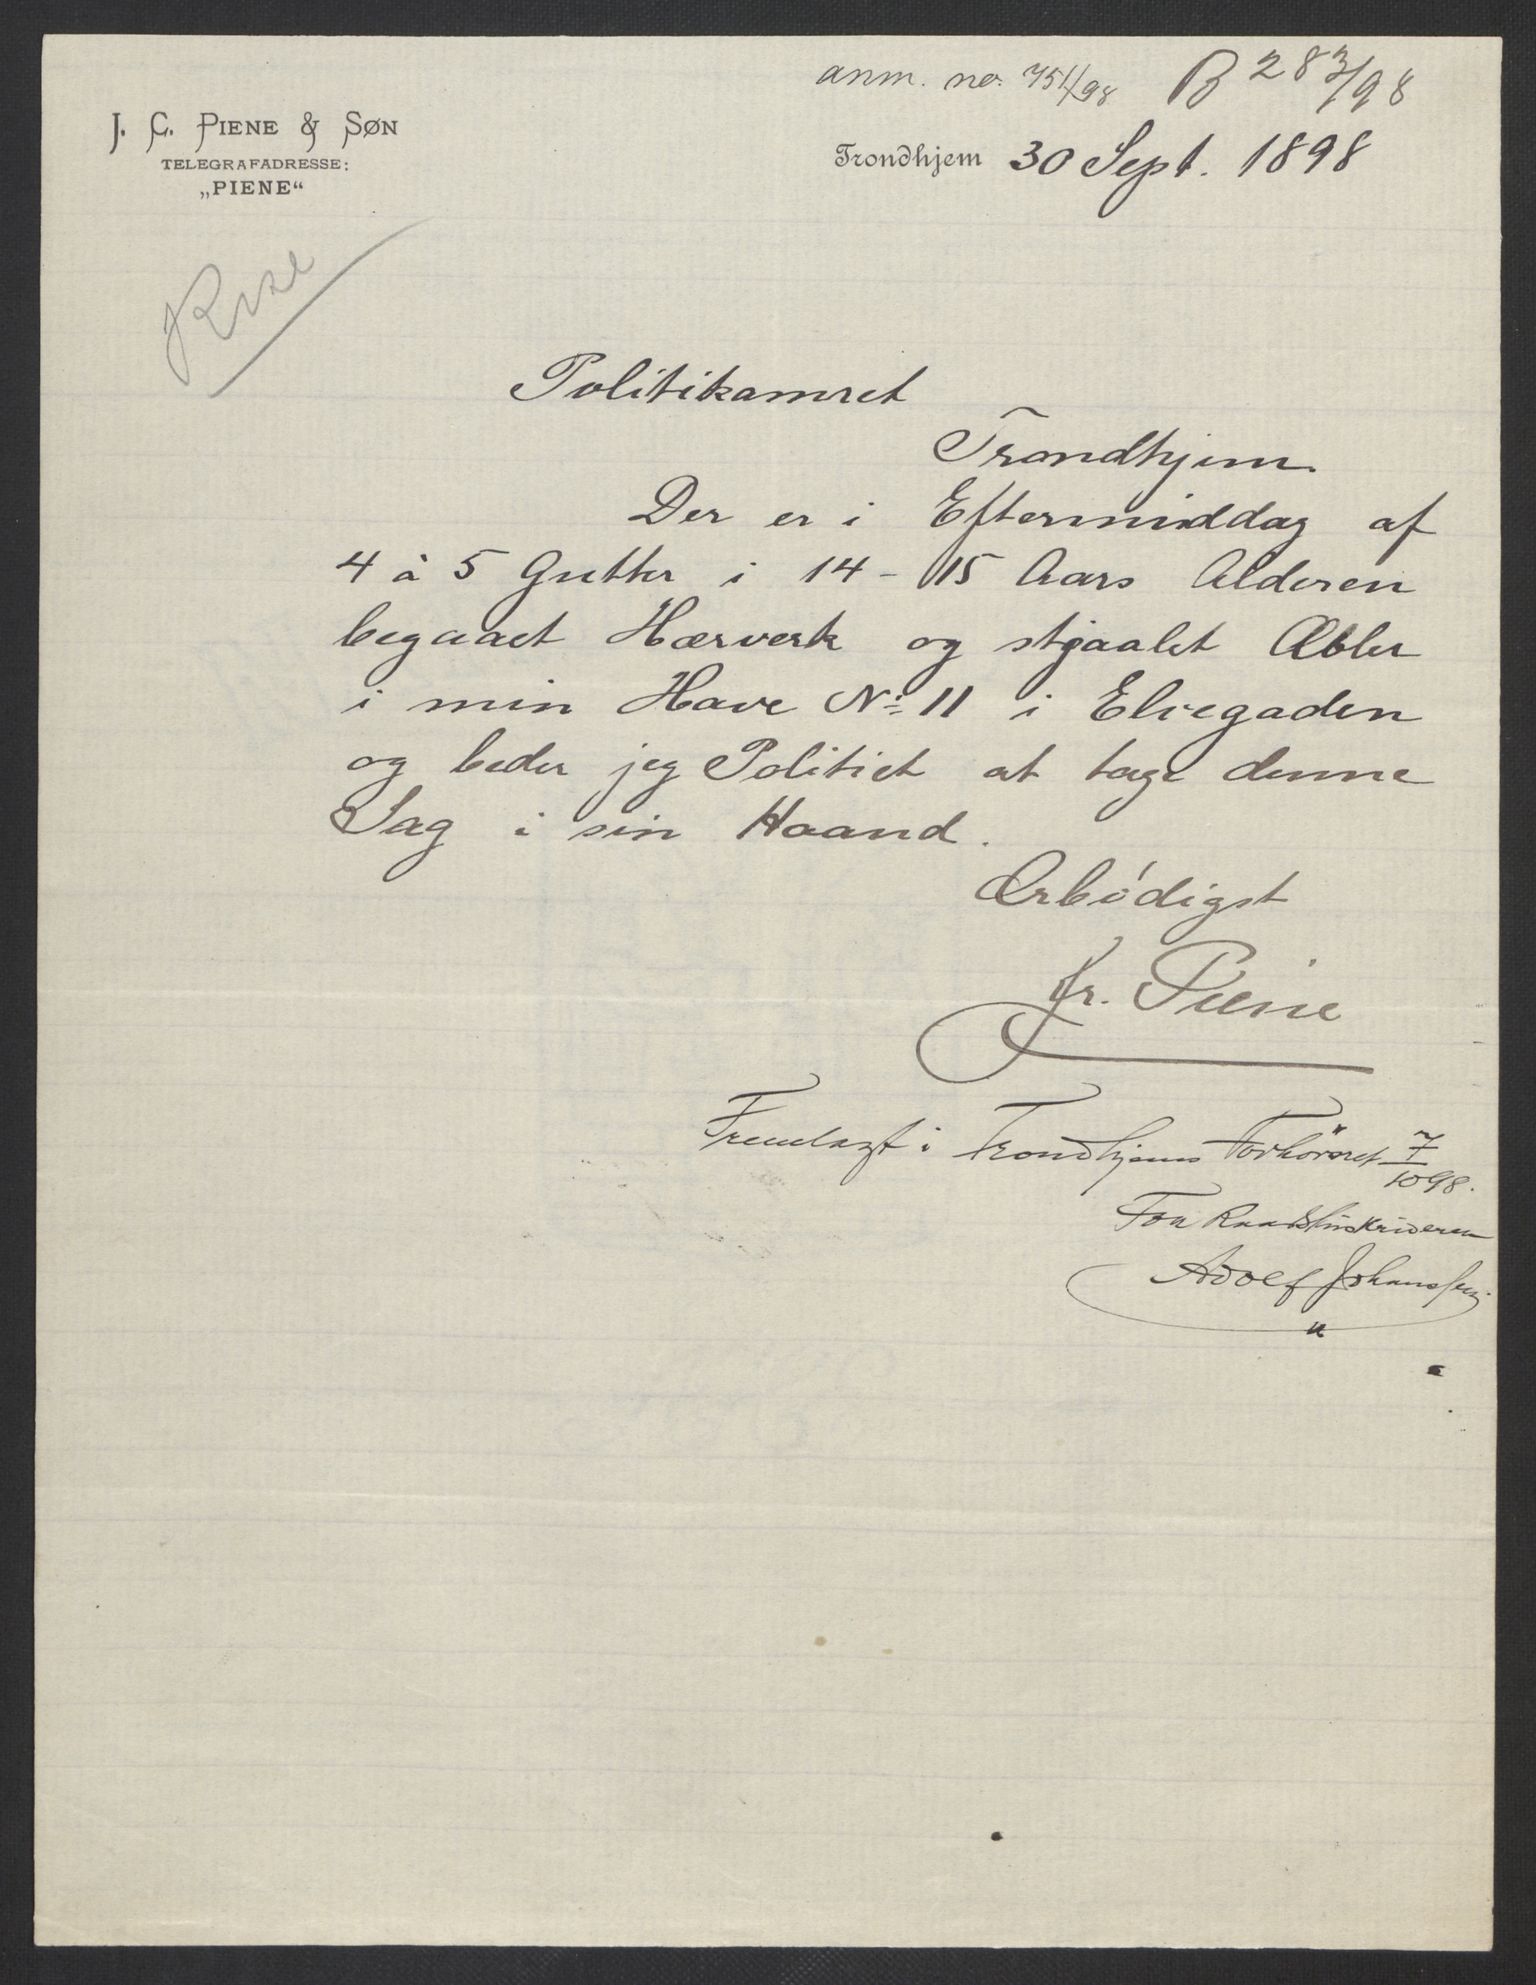 anm. no. 751/98 B 283/98
J. C. PIENE & SØN
TELEGRAFADRESSE:
„PIENE“
Trondhjem 30 Sept. 1898
Politikamret
Trondhjem.
Der er i Eftermiddag af
4 à 5 Gutter i 14 - 15 Aars Alderen
begaaet Hærverk og stjaalet Æbler
i min Have No 11 i Elvegaden
og beder jeg Politiet at tage denne
Sag i sin Haand.
Ærbödigst
Fr. Piene
Fremlagt i Trondhjems Forhörsret 7/10 98.
For Raadstuskriveren
Adolf Johanssen